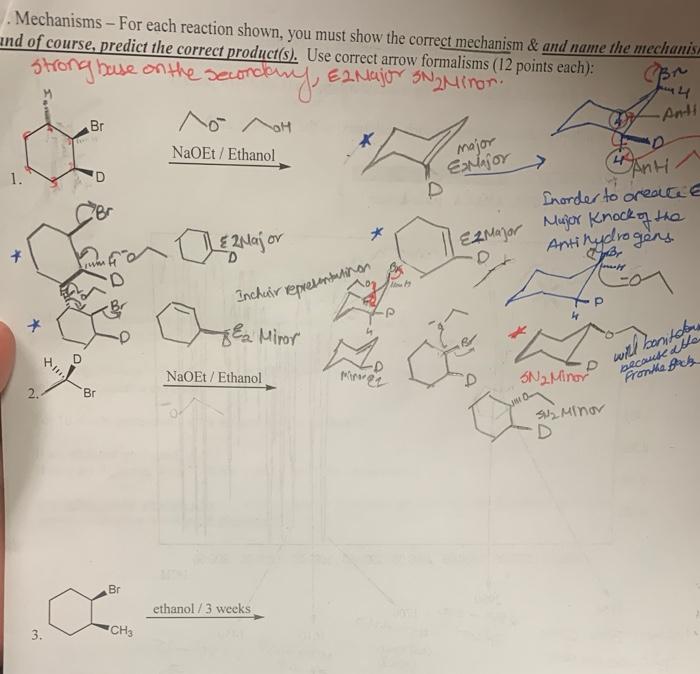 . Mechanisms – For each reaction shown, you must show the correct mechanism & and name the mechanis
and of course, predict the correct product(s). Use correct arrow formalisms (12 points each):
Strong base on the secondary, E2 Major SN2 Minor.
H
Br
D
1.
O⁻ OH
NaOEt / Ethanol
major
E2 Major
D
Br
H
Anti
D
H Anti
Inorder to create E
Major Knock of the
Anti hydrogens
Br
H
D
E2 Major
D
E2 Major
D
Br
D
E2 Minor
Inchair representation
Br
D
H
D
Minor E2
Br
D
Br
O
D
H
O
D
SN2 Minor
because
From the Back
SN2 Minor
D
H
D
Br
2.
NaOEt / Ethanol
O
Br
CH₃
3.
ethanol / 3 weeks